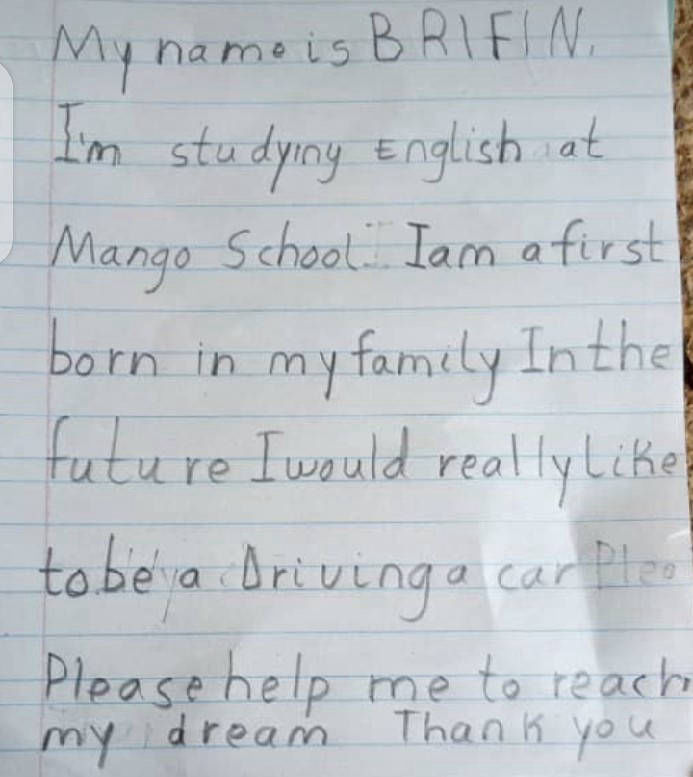 My name is BRIFIN.
I'm studying English at
Mango School. I am a first
born in my family In the
future I would really like
to be a Driving a car Plea
Please help me to reach
my dream Thank you